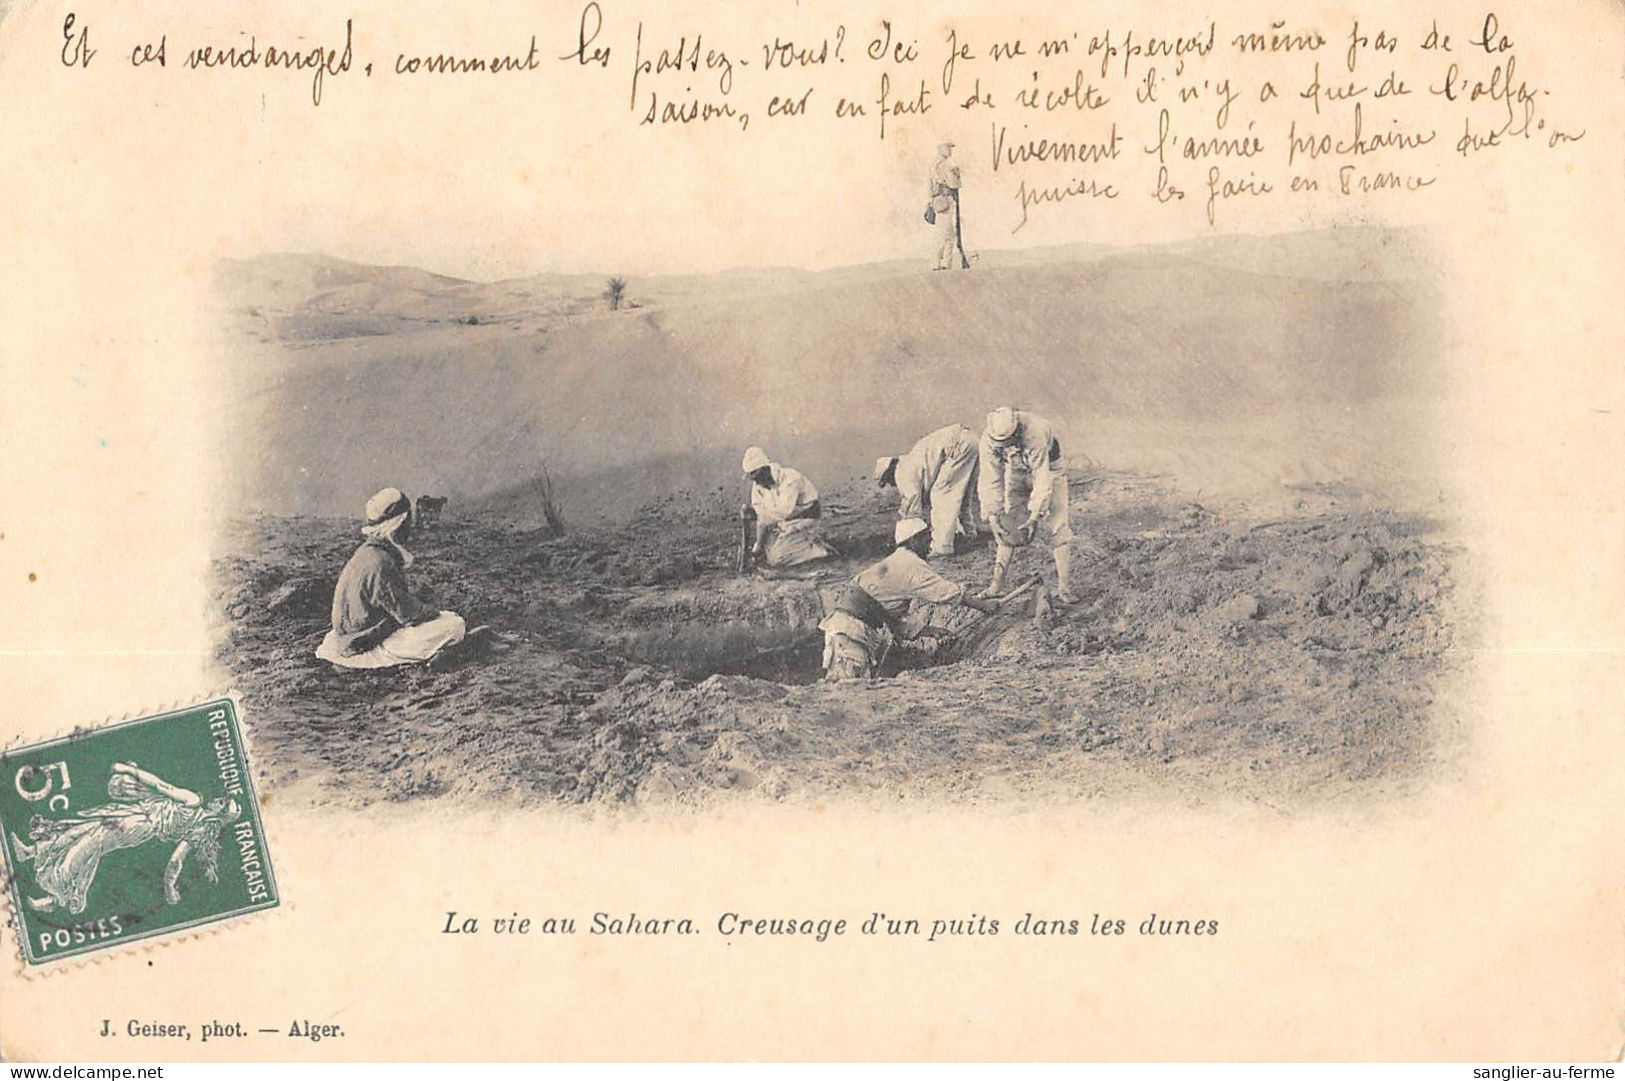 Et ces vendanges, comment les passez-vous? Ici je ne m'apperçois même pas de la
saison, car en fait de récolte il n'y a que de l'alfa.
Vivement l'année prochaine que l'on
puisse les faire en France
REPUBLIQUE FRANÇAISE
5c
POSTES
La vie au Sahara. Creusage d'un puits dans les dunes
J. Geiser, phot. — Alger.
sanglier-au-ferme